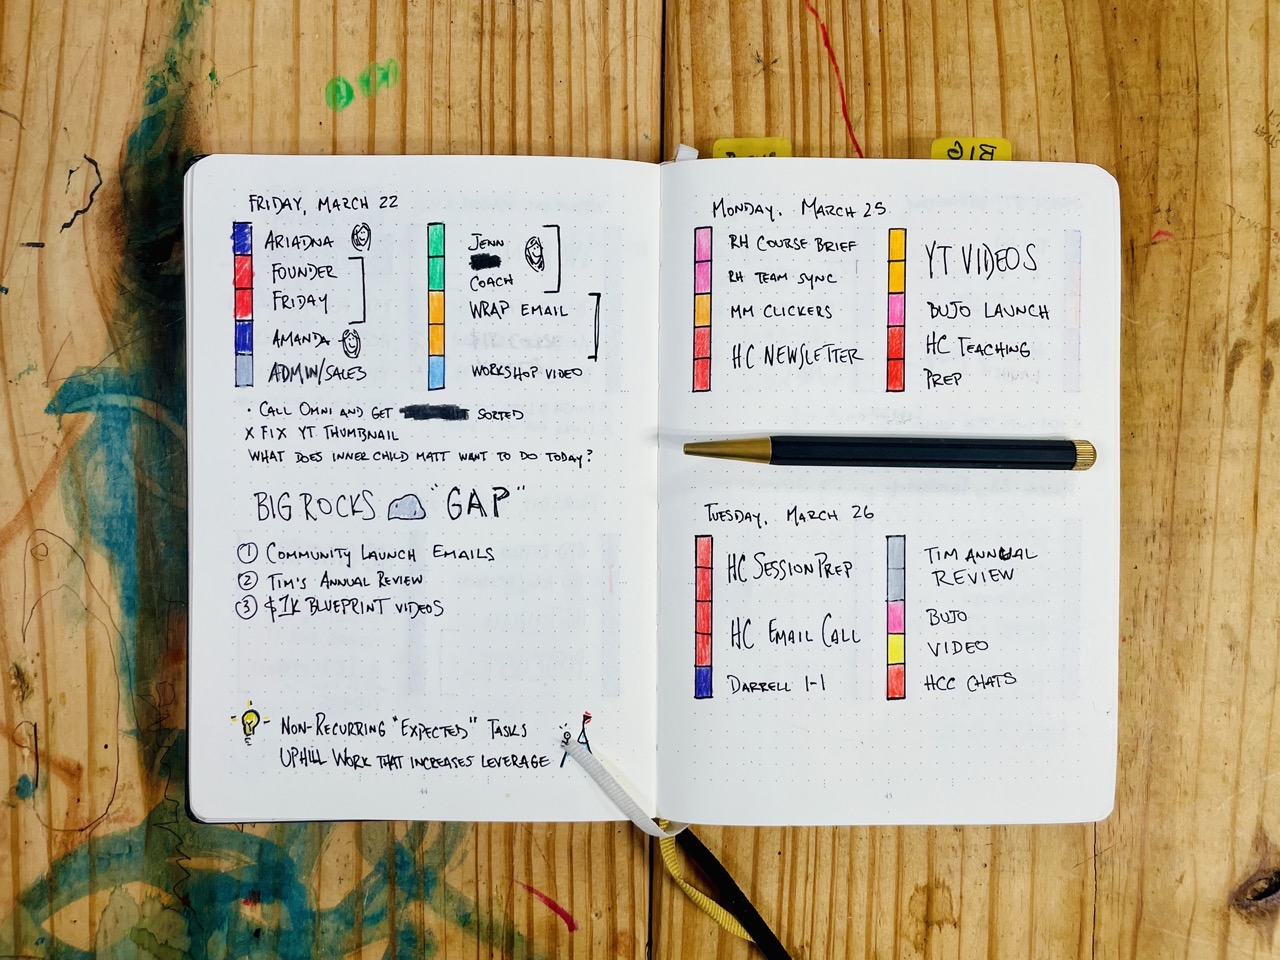 BIG
FRIDAY, MARCH 22
ARIADNA
FOUNDER
FRIDAY
AMANDA
ADMIN/SALES
JENN
COACH
WRAP EMAIL
WORKSHOP VIDEO
· CALL OMNI AND GET SORTED
X FIX YT THUMBNAIL
WHAT DOES INNER CHILD MATT WANT TO DO TODAY?
BIG ROCKS "GAP"
① COMMUNITY LAUNCH EMAILS
② TIM'S ANNUAL REVIEW
③ $1K BLUEPRINT VIDEOS
NON-RECURRING "EXPECTED" TASKS
UPHILL WORK THAT INCREASES LEVERAGE
44
MONDAY, MARCH 25
RH COURSE BRIEF
RH TEAM SYNC
MM CLICKERS
HC NEWSLETTER
YT VIDEOS
BUJO LAUNCH
HC TEACHING
PREP
TUESDAY, MARCH 26
HC SESSION PREP
HC EMAIL CALL
DARRELL 1-1
TIM ANNUAL
REVIEW
BUJO
VIDEO
HCC CHATS
45